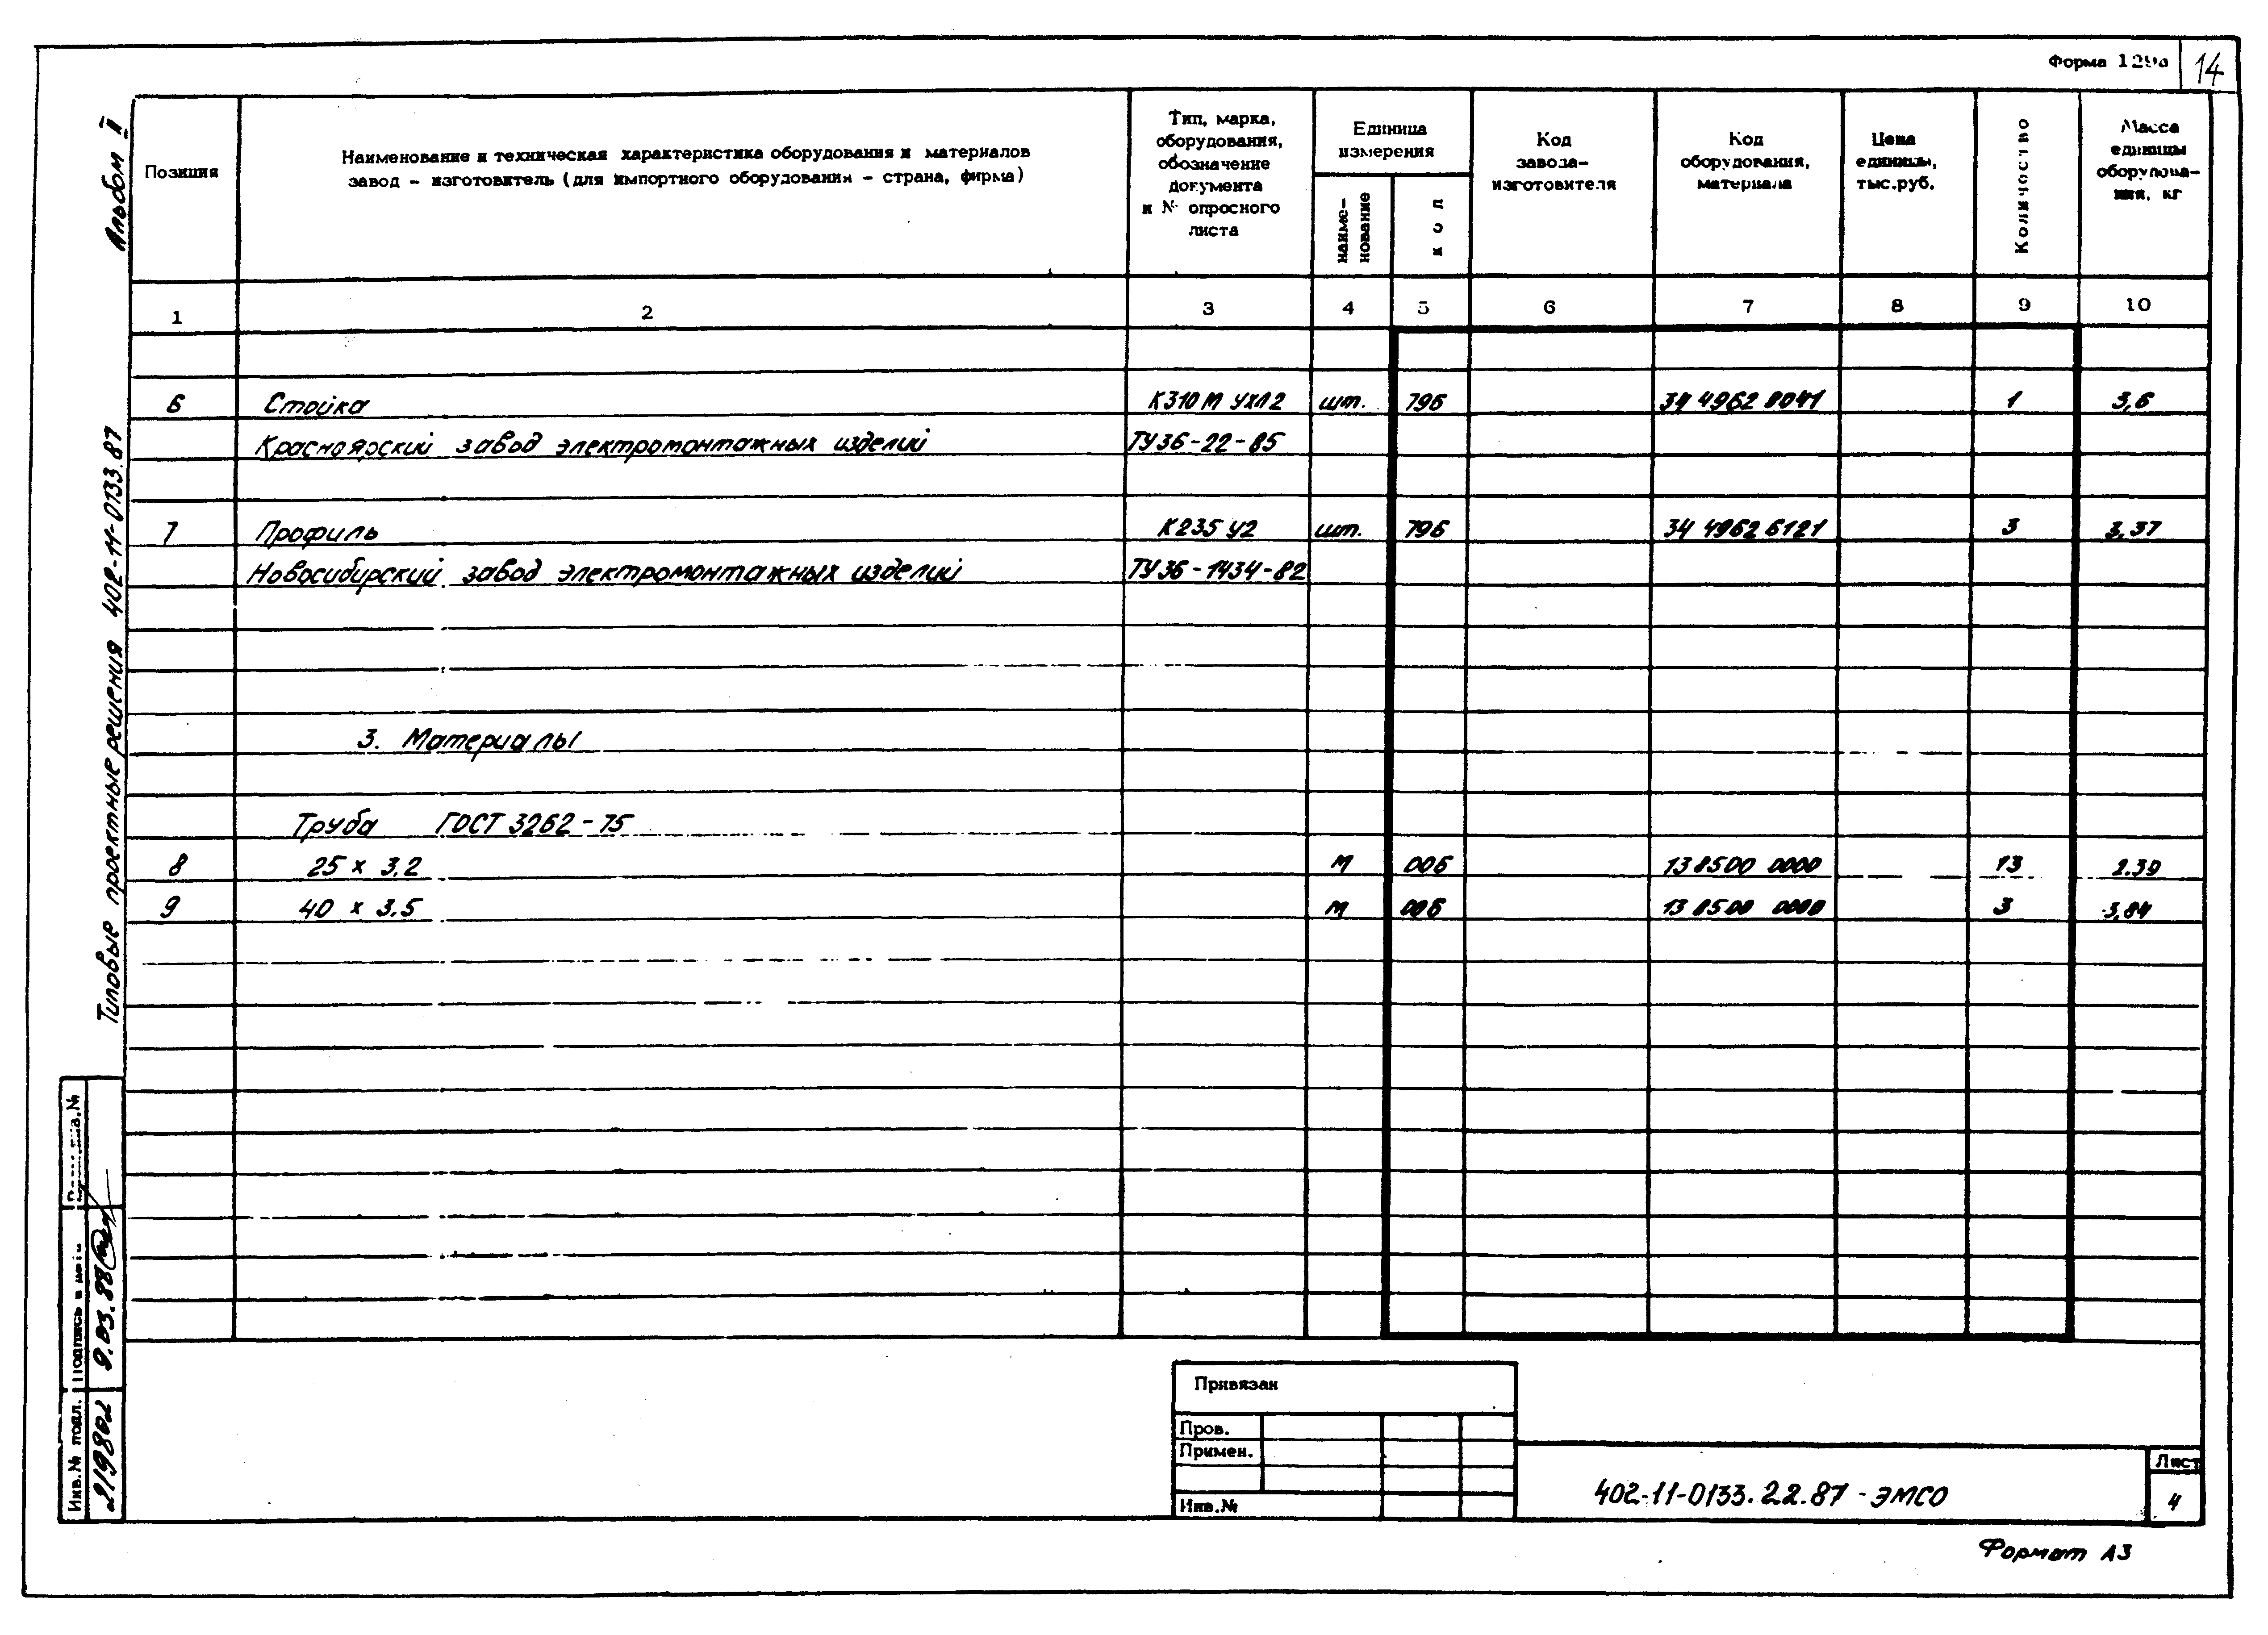 Форма 129а
14
Альбом II
Типовые проектные решения 402-11-0133.87
Позиция
Наименование и техническая характеристика оборудования и материалов
завод - изготовитель (для импортного оборудования - страна, фирма)
Тип, марка,
оборудования,
обозначение
документа
и № опросного
листа
Единица
измерения
наиме-
нование
код
Код
завода-
изготовителя
Код
оборудования,
материала
Цена
единицы,
тыс.руб.
Количество
Масса
единицы
оборудова-
ния, кг
1 2 3 4 5 6 7 8 9 10
6 Стойка К310М УХЛ2 шт. 796 34 4962 8041 1 3,6
Красноярский завод электромонтажных изделий ТУ36-22-85
7 Профиль К235 У2 шт. 796 34 4962 6121 3 3,37
Новосибирский завод электромонтажных изделий ТУ36-1434-82
3. Материалы
Труба ГОСТ 3262-75
8 25 х 3,2 м 006 13 8500 0000 13 2.39
9 40 х 3.5 м 006 13 8500 0000 3 3,84
инв.№
Подпись и дата
9.03.88
Инв.№ подл.
Привязан
Пров.
Примен.
Инв.№
402-11-0133.22.87 - ЭМСО
Лист
4
Формат А3